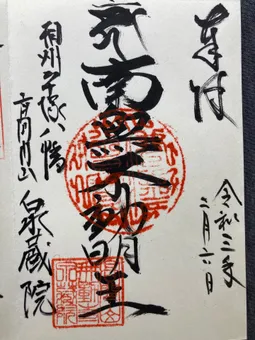 奉拝
令和三年
二月六日
南無不動明王
相州平塚八幡
泉蔵院